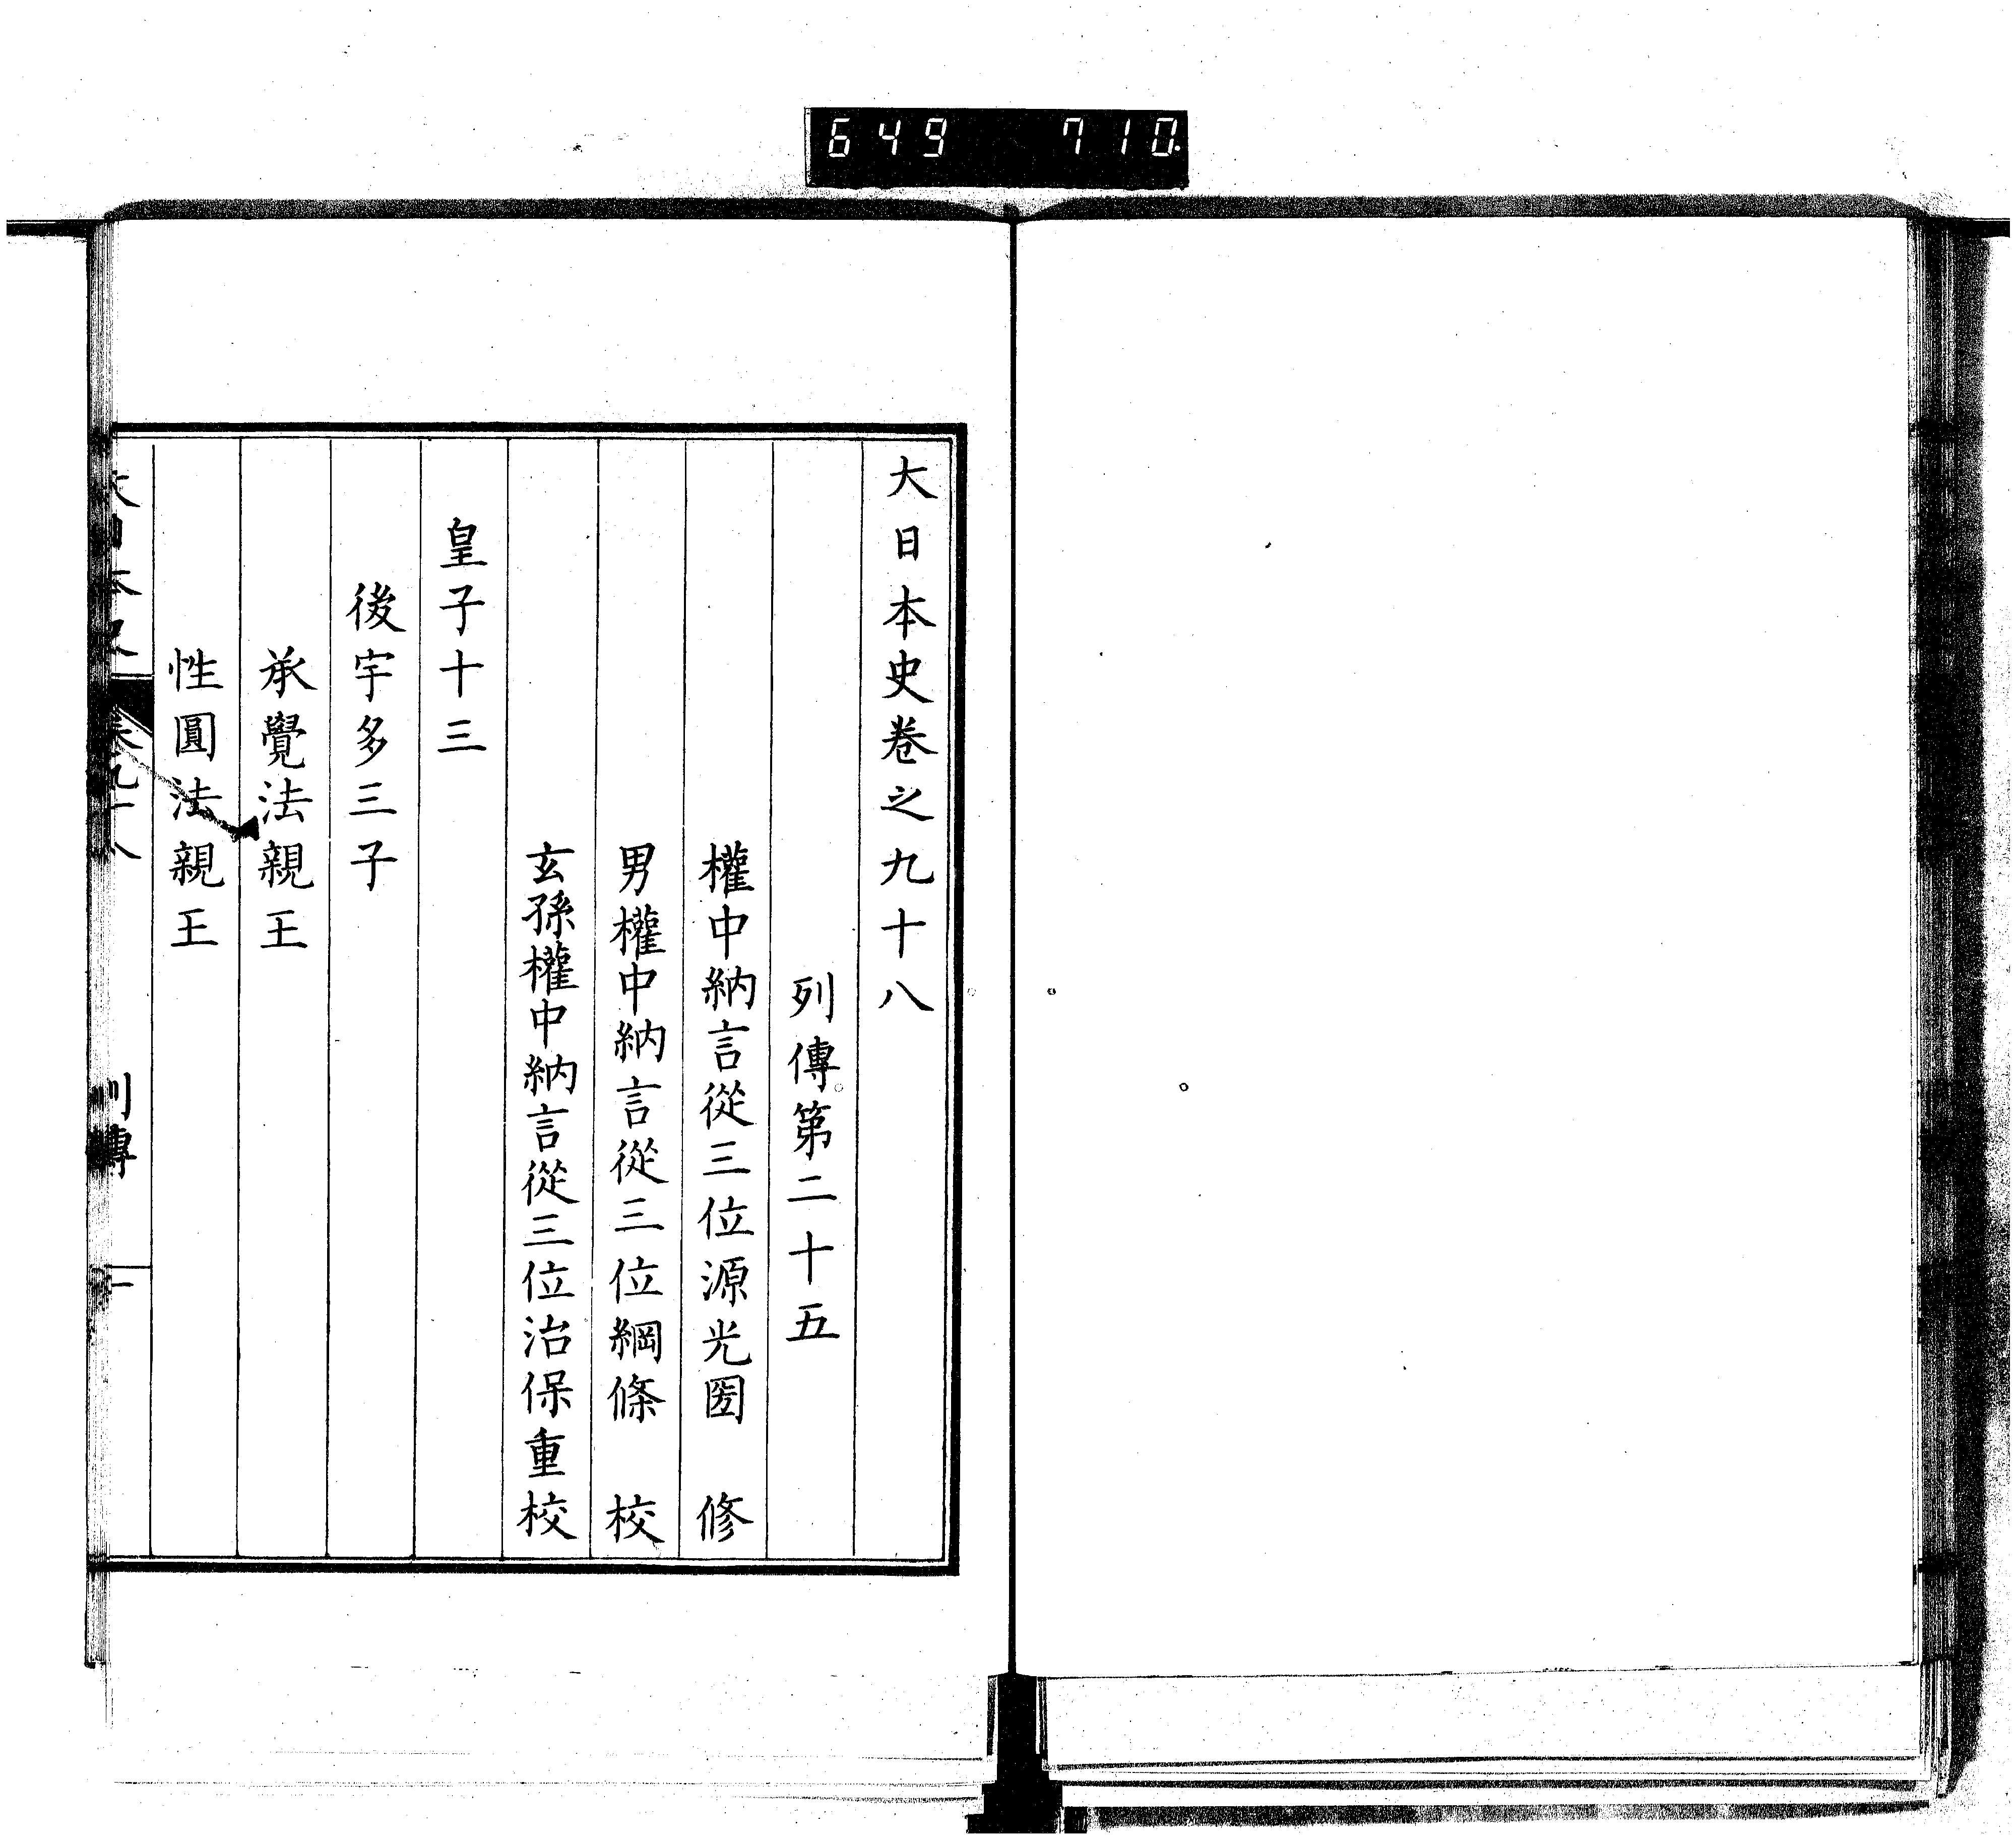 649 710.
大日本史卷之九十八
列傳第二十五
權中納言從三位源光圀 修
男權中納言從三位綱條 校
玄孫權中納言從三位治保重校
皇子十三
後宇多三子
承覺法親王
性圓法親王
列傳